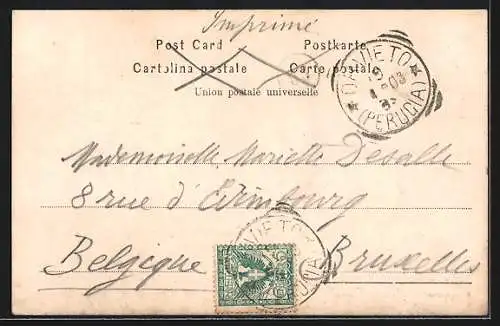 Imprimé
Post Card Postkarte
Cartolina postale Carte postale
Union postale universelle
ORVIETO
(PERUGIA)
Mademoiselle Mariette Desalle
8 rue d'Edimbourg
Belgique Bruxelles